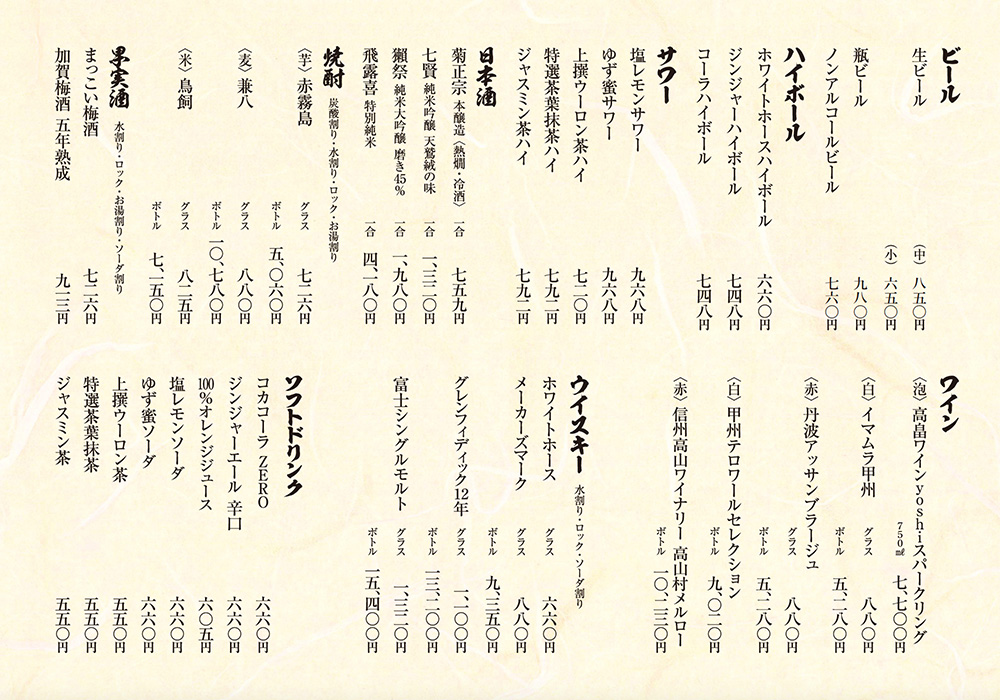 ビール
生ビール
（中） 八五〇円
（小） 六五〇円
瓶ビール 九八〇円
ノンアルコールビール 七六〇円
ハイボール
ホワイトホースハイボール 六六〇円
ジンジャーハイボール 七四八円
コーラハイボール 七四八円
サワー
塩レモンサワー 九六八円
ゆず蜜サワー 九六八円
上撰ウーロン茶ハイ 七二〇円
特選茶葉抹茶ハイ 七九二円
ジャスミン茶ハイ 七九二円
日本酒
菊正宗 本醸造〈熱燗・冷酒〉 一合 七五九円
七賢 純米吟醸 天鵞絨の味 一合 一、三二〇円
獺祭 純米大吟醸 磨き45％ 一合 一、九八〇円
飛露喜 特別純米 一合 四、一八〇円
焼酎 炭酸割り・水割り・ロック・お湯割り
〈芋〉赤霧島 グラス 七二六円
ボトル 五、〇六〇円
〈麦〉兼八 グラス 八八〇円
ボトル 一〇、七八〇円
〈米〉鳥飼 グラス 八二五円
ボトル 七、一五〇円
果実酒 水割り・ロック・お湯割り・ソーダ割り
まっこい梅酒 七二六円
加賀梅酒 五年熟成 九一三円
ワイン
〈泡〉高畠ワインyoshiスパークリング
750㎖ 七、七〇〇円
〈白〉イマムラ甲州 グラス 八八〇円
ボトル 五、二八〇円
〈赤〉丹波アッサンブラージュ
グラス 八八〇円
ボトル 五、二八〇円
〈白〉甲州テロワールセレクション
ボトル 九、〇二〇円
〈赤〉信州高山ワイナリー 高山村メルロー
ボトル 一〇、二三〇円
ウイスキー 水割り・ロック・ソーダ割り
ホワイトホース グラス 六六〇円
メーカーズマーク グラス 八八〇円
ボトル 九、三五〇円
グレンフィディック12年 グラス 一、一〇〇円
ボトル 一三、二〇〇円
富士シングルモルト グラス 一、三二〇円
ボトル 一五、四〇〇円
ソフトドリンク
コカコーラ ZERO 六六〇円
ジンジャーエール 辛口 六六〇円
100％オレンジジュース 六〇五円
塩レモンソーダ 六六〇円
ゆず蜜ソーダ 六六〇円
上撰ウーロン茶 五五〇円
特選茶葉抹茶 五五〇円
ジャスミン茶 五五〇円